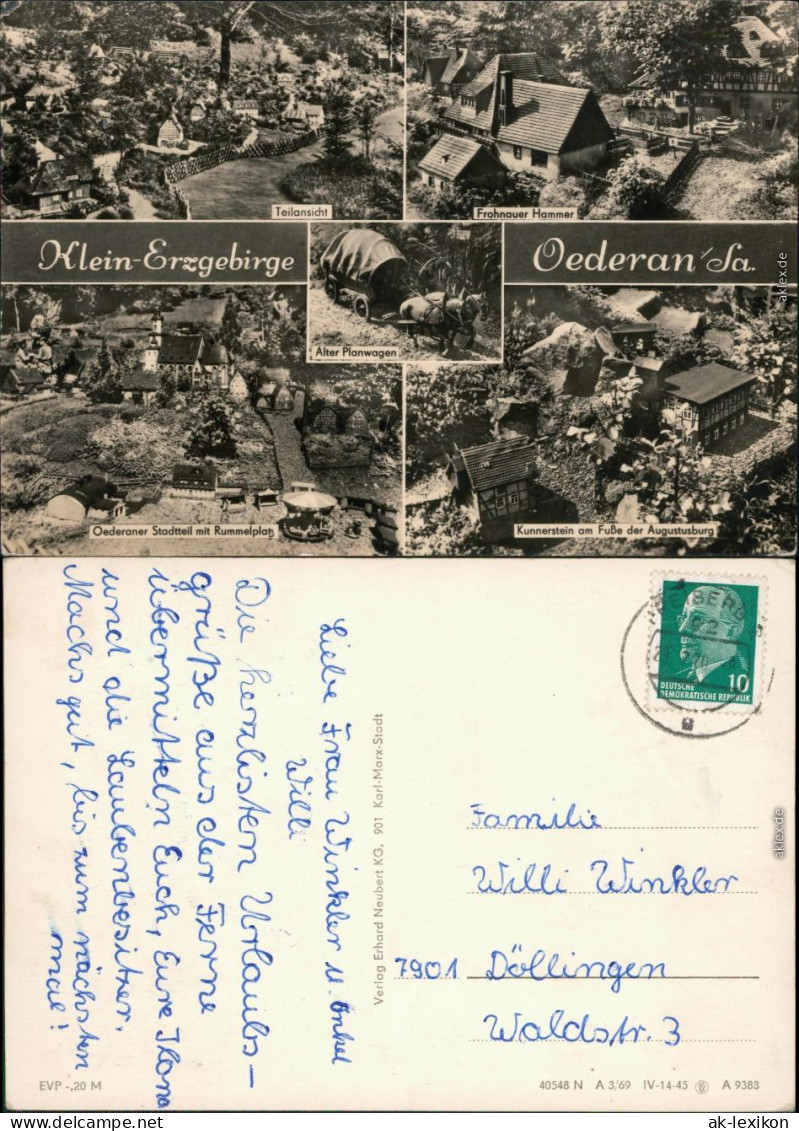 Teilansicht
Frohnauer Hammer
Klein-Erzgebirge
Oederan /Sa.
Alter Planwagen
Oederaner Stadtteil mit Rummelplatz
Kunnerstein am Fuße der Augustusburg
Liebe Frau Winkler u. Onkel
Willi
Die herzlisten Urlaubs-
grüße aus der Ferne
übermitteln Euch, Eure Ilona
und die Laubenbesitzer.
Machs gut, bis zum nächsten
mal!
Verlag Erhard Neubert KG, 901 Karl-Marx-Stadt
10
DEUTSCHE
DEMOKRATISCHE REPUBLIK
Familie
Willi Winkler
7901 Döllingen
Waldstr. 3
EVP -,20 M
40548 N A 3/69 IV-14-45 A 9388
aklex.de
aklex.de
www.ak-ansichtskarten.de
ak-lexikon.com